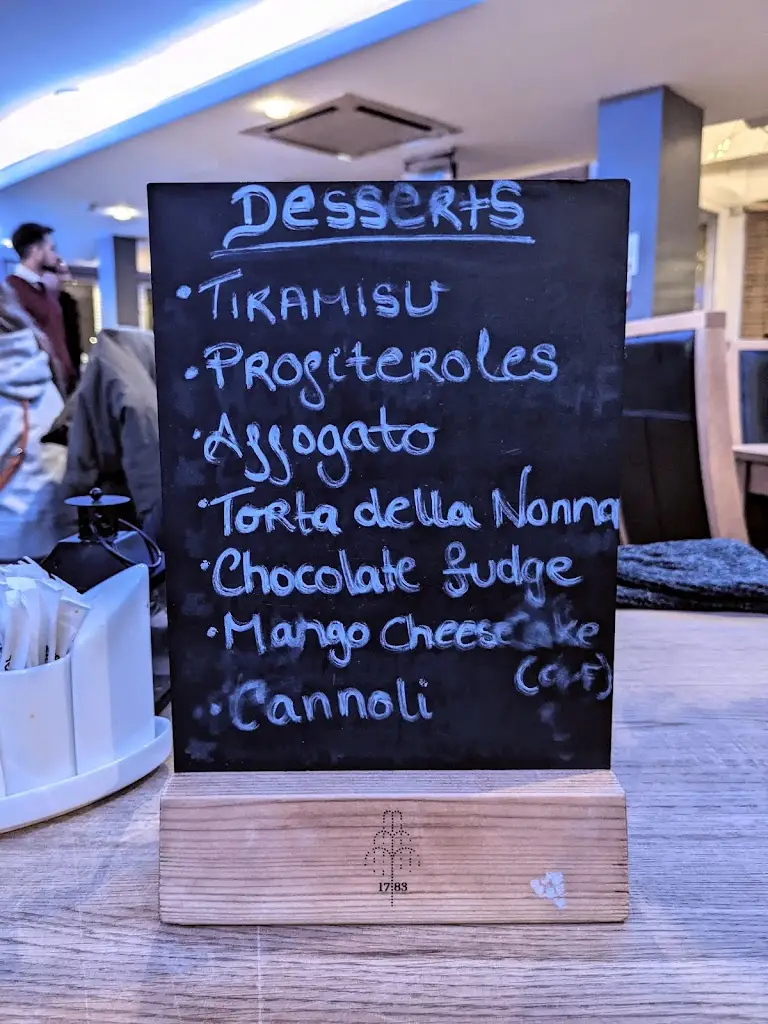 Desserts
• TIRAMISU
• Profiteroles
• Affogato
• Torta della Nonna
• Chocolate fudge
• Mango Cheesecake
• Cannoli
17 83